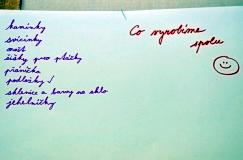 kamínky
svícínky
mošt
šišky pro ptáčky
přáníčka
podložky √
sklenice a barvy na sklo
jehelníčky
Co vyrobíme
spolu